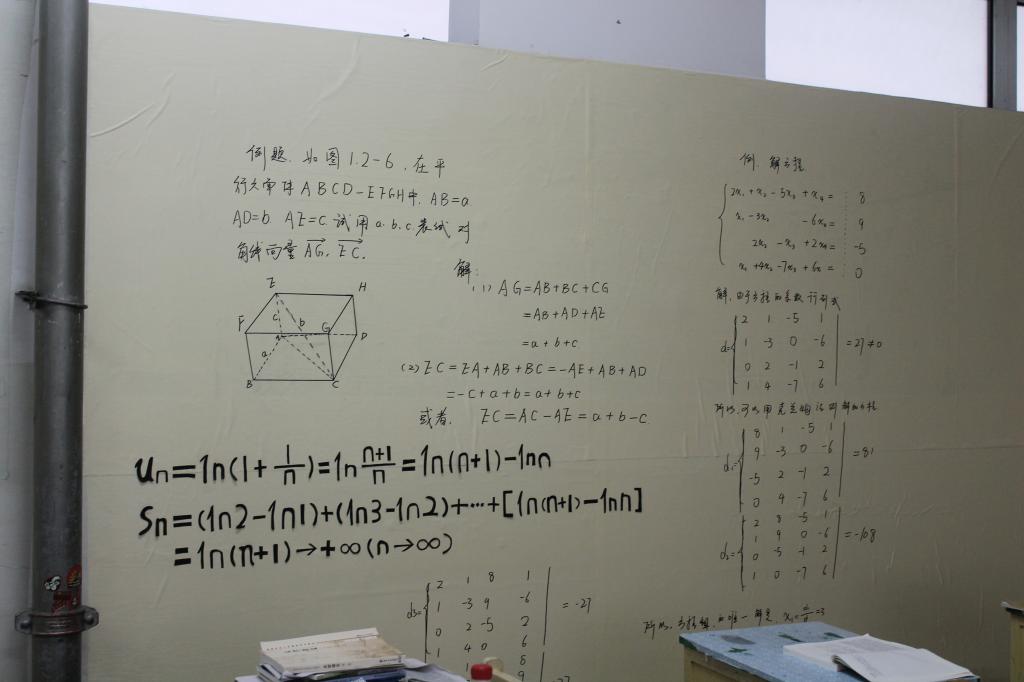 例题. 如图1.2-6, 在平
行六面体ABCD-EFGH中, AB=a
AD=b. AE=c. 试用a.b.c.表试对
角线向量 AG, EC.
E
H
F
G
D
c
b
a
B
C
解:
(1) AG=AB+BC+CG
=AB+AD+AE
=a+b+c
(2) EC=EA+AB+BC=-AE+AB+AD
=-c+a+b=a+b+c
或者, EC=AC-AE=a+b-c.
un=ln(1+1/n)=ln n+1/n=ln(n+1)-lnn
Sn=(ln2-ln1)+(ln3-ln2)+···+[ln(n+1)-lnn]
=ln(n+1)→+∞(n→∞)
d3=
2 1 8 1
1 -3 9 -6
0 2 -5 2
1 4 0 6
=-27
8
9
27
例. 解方程
2x1+x2-5x3+x4= 8
x1-3x2 -6x4= 9
2x2-x3+2x4= -5
x1+4x2-7x3+6x= 0
解, 由于方程的系数行列式
d=
2 1 -5 1
1 -3 0 -6
0 2 -1 2
1 4 -7 6
=27≠0
所以, 可以用克兰姆法则
d1=
8 1 -5 1
9 -3 0 -6
-5 2 -1 2
0 4 -7 6
=81
d2=
2 8 -5 1
1 9 0 -6
0 -5 -1 2
1 0 -7 6
=-108
所以, 方程组的唯一解是, x1= =3